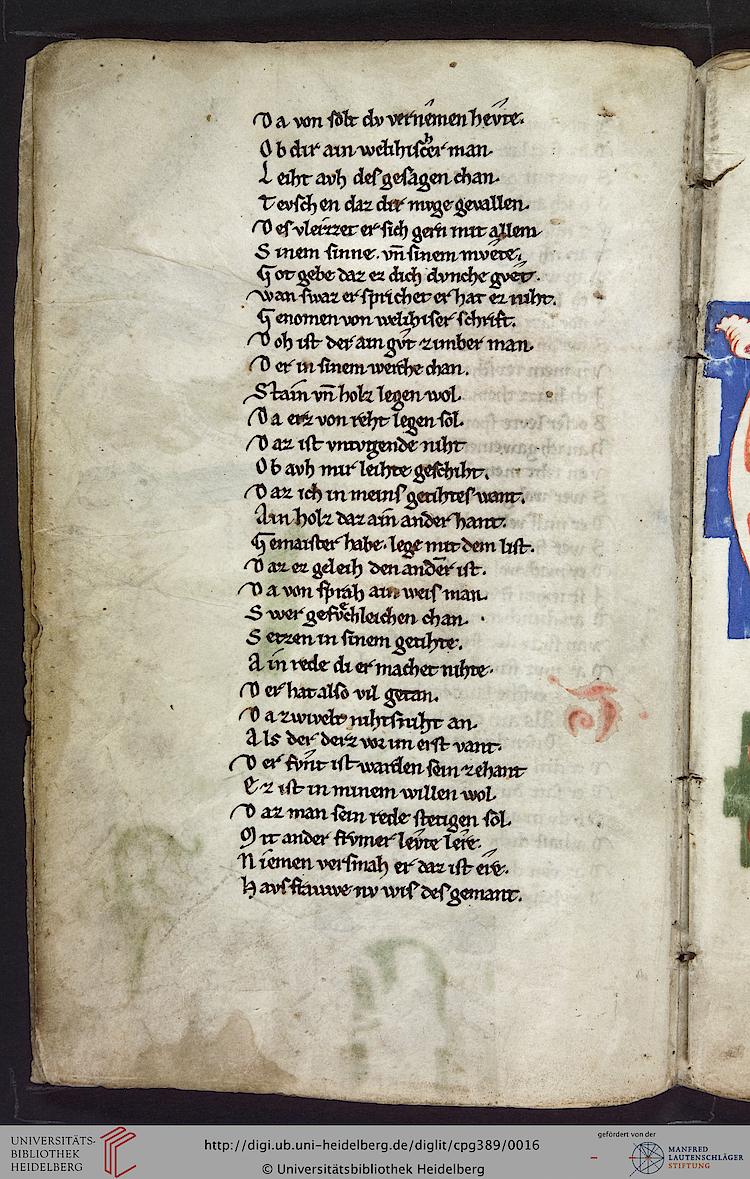 Da von solt du vernemen hevte.
Ob dir ain welihischer man
Leiht avh des gesagen chan.
Tevschen daz dir mvge gevallen.
Des vleizzet er sich gern mit allem
Sinem sinne. vn̄ sinem mvete.
Got gebe daz ez dich dvnche gvet.
wan swaz er sprichet er hat ez niht.
Genomen von welihiser schrift.
Doh ist der ain gvt zimber man
Der in sinem werche chan.
Stain vn̄ holz legen wol.
Da erz von reht legen sol.
Daz ist vntvgende niht
Ob avh mir leihte geschiht.
Daz ich in meins getihtes want.
Ain holz daz ain ander hant.
Gemaister habe. lege mit dem list.
Daz ez geleih den ander ist.
Da von sprah ain weis man.
Swer gefvchleichen chan.
Setzen in sinem getihte.
Ain rede di er machet nihte.
Der hat also vil getan.
Da zwivelt nihtsniht an.
Als der derz vor im erst vant.
Der fvnt ist warden sein zehant
Ez ist in minem willen wol
Daz man sein rede stetigen sol.
Mit ander frvmer levte lere.
Niemen versmah er daz ist ere.
Havsfrauwe nv wis des gemant.
UNIVERSITÄTS-
BIBLIOTHEK
HEIDELBERG
http://digi.ub.uni-heidelberg.de/diglit/cpg389/0016
© Universitätsbibliothek Heidelberg
gefördert von der
MANFRED
LAUTENSCHLÄGER
STIFTUNG